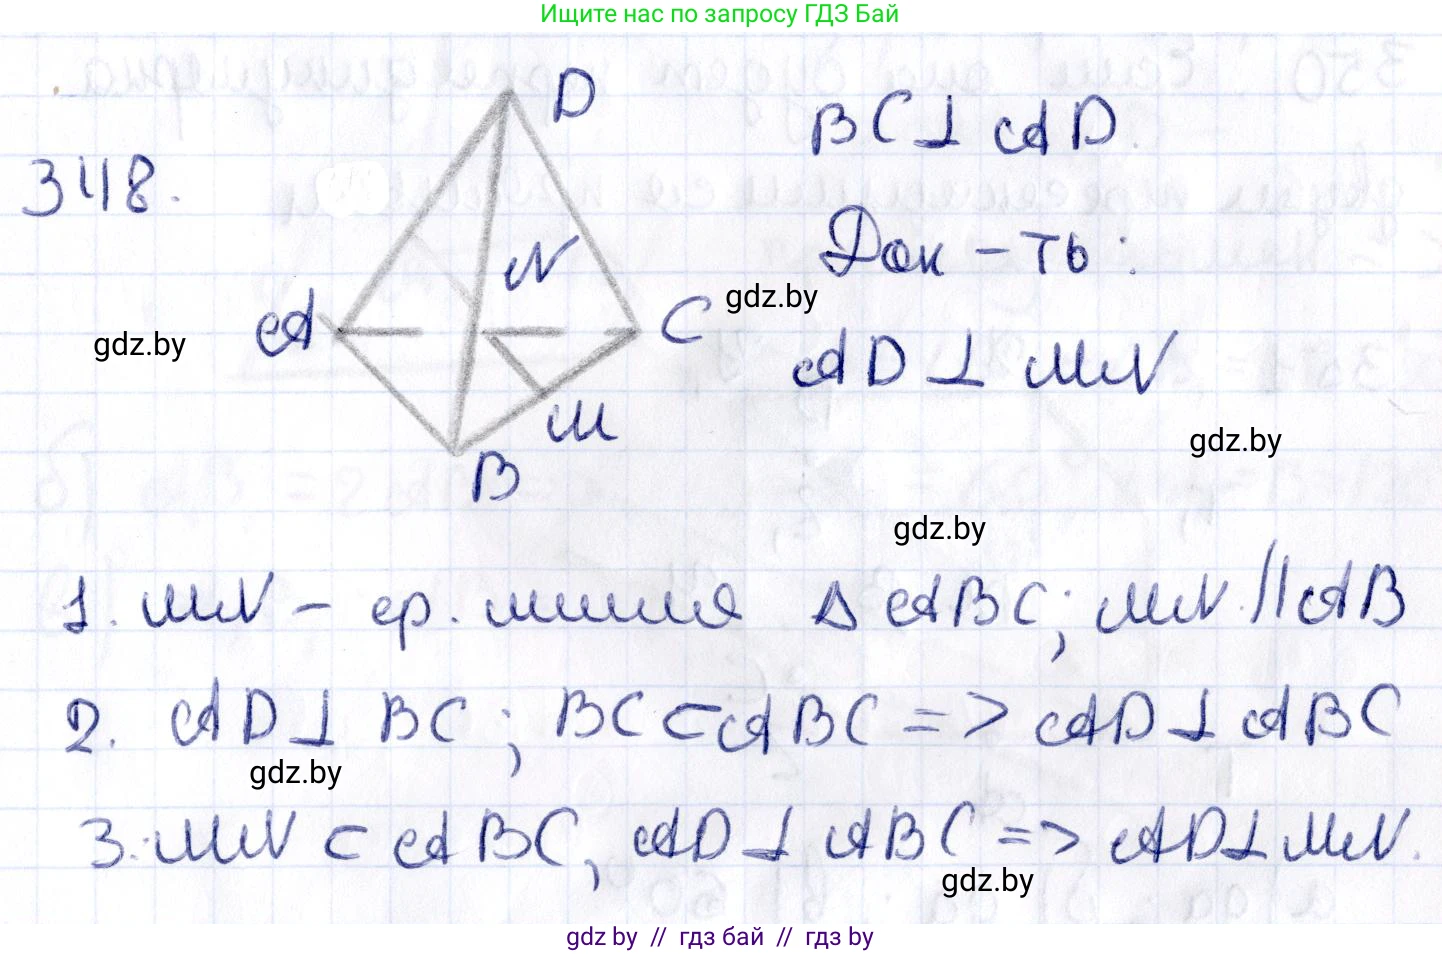 Ищите нас по запросу ГДЗ Бай
348.
D
N
A
C
M
B
BC ⊥ AD
Док-ть:
AD ⊥ MN
gdz.by
gdz.by
gdz.by
gdz.by
1. MN – ср. линия Δ ABC; MN || AB
2. AD ⊥ BC; BC ⊂ ABC => AD ⊥ ABC
gdz.by
3. MN ⊂ ABC, AD ⊥ ABC => AD ⊥ MN.
gdz.by
gdz by // гдз бай // гдз by